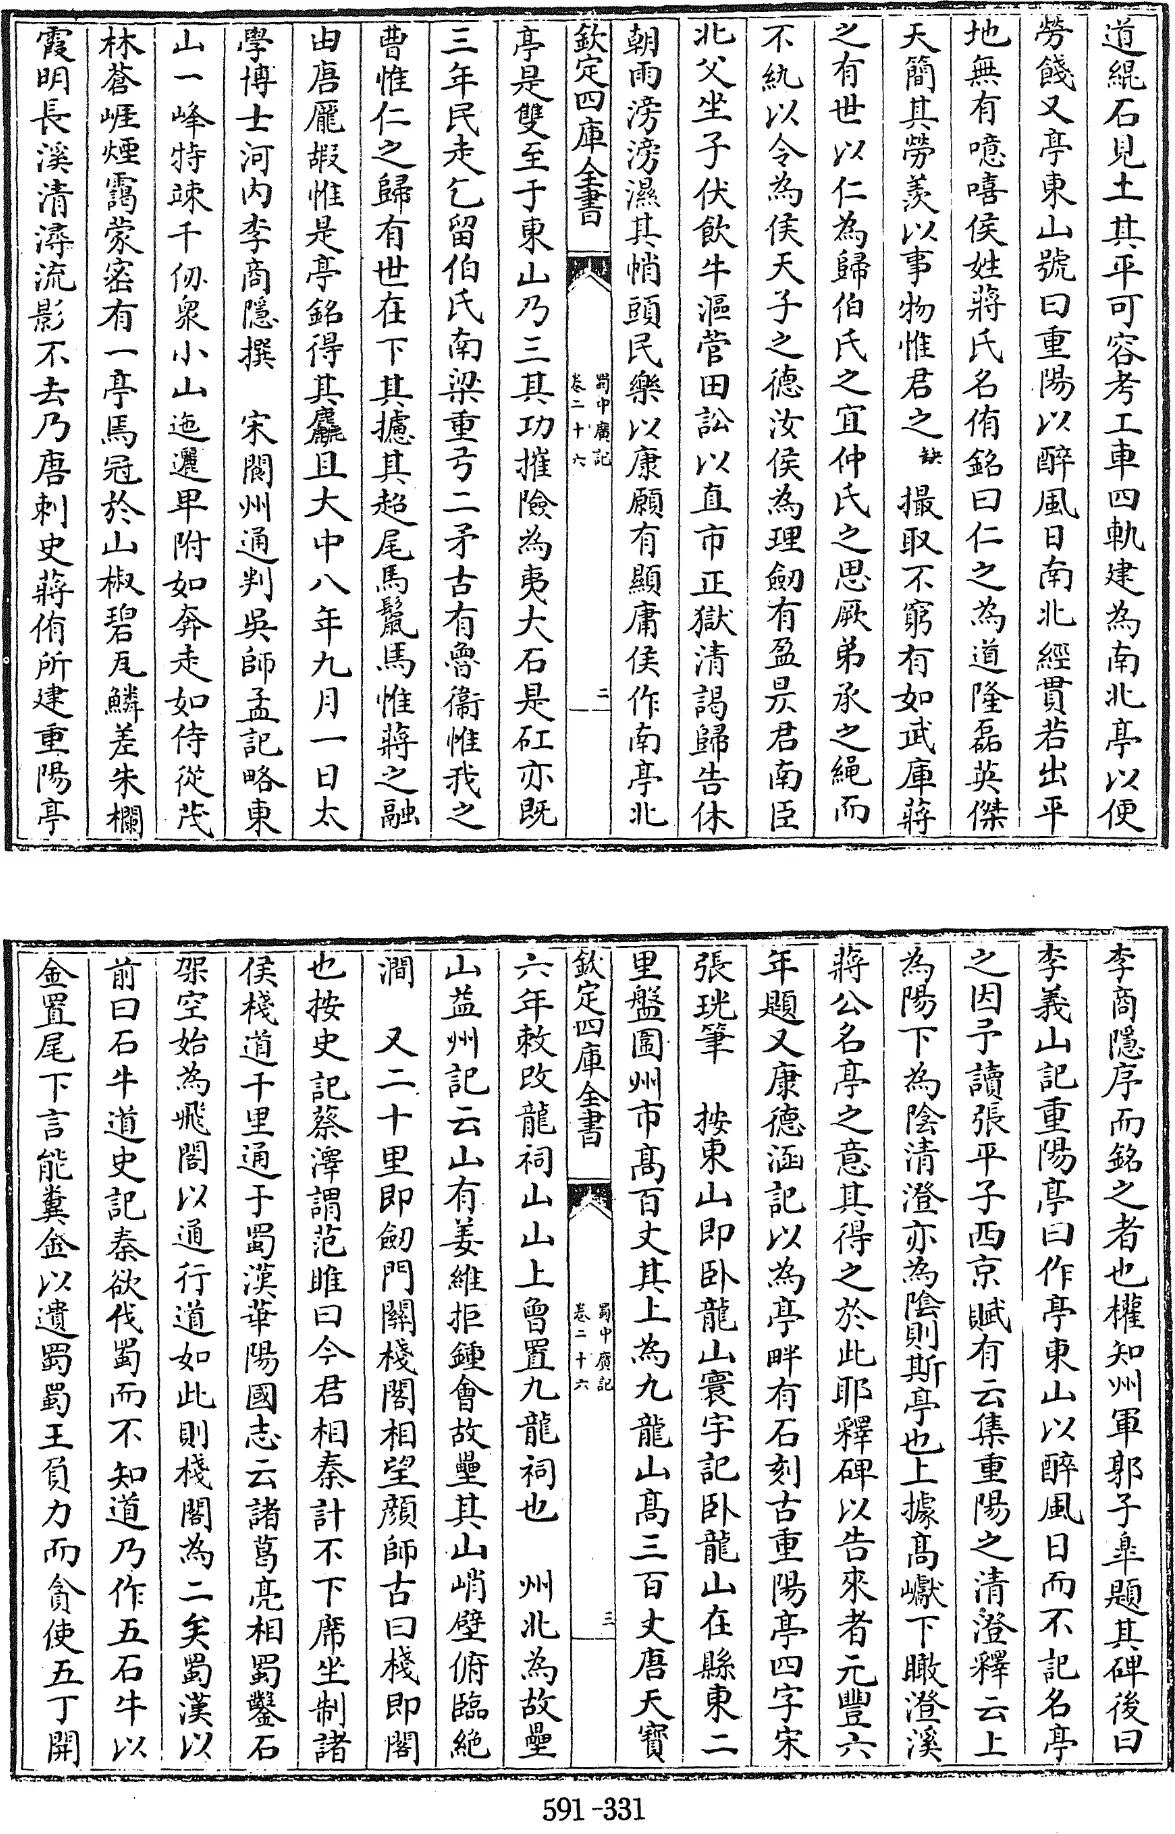 道緄石見土其平可容考工車四軌建為南北亭以便
勞餞又亭東山號曰重陽以醉風日南北經貫若出平
地無有噫嘻侯姓蔣氏名侑銘曰仁之為道隆磊英傑
天簡其勞羨以事物惟君之缺撮取不窮有如武庫蔣
之有世以仁為歸伯氏之宜仲氏之思厥弟承之繩而
不紈以令為侯天子之德汝侯為理劒有盈昃君南臣
北父坐子伏飲牛漚菅田訟以直市正獄清謁歸告休
朝雨滂滂濕其帩頭民樂以康願有顯庸侯作南亭北
欽定四庫全書
蜀中廣記
卷二十六
二
亭是雙至于東山乃三其功摧險為夷大石是矼亦既
三年民走乞留伯氏南梁重弓二矛古有魯衞惟我之
曹惟仁之歸有世在下其攄其超尾馬鬣馬惟蔣之融
由唐龎嘏惟是亭銘得其麤且大中八年九月一日太
學博士河内李商隱撰　宋閬州通判吳師孟記略東
山一峰特竦千仞衆小山迤邐卑附如奔走如侍從茂
林蒼崕煙靄蒙密有一亭馬冠於山椒碧瓦鱗差朱欄
霞明長溪清潯流影不去乃唐刺史蔣侑所建重陽亭
李商隱序而銘之者也權知州軍郭子臯題其碑後曰
李義山記重陽亭曰作亭東山以醉風日而不記名亭
之因予讀張平子西京賦有云集重陽之清澄釋云上
為陽下為陰清澄亦為陰則斯亭也上據髙巘下瞰澄溪
蔣公名亭之意其得之於此耶釋碑以告來者元豐六
年題又康德涵記以為亭畔有石刻古重陽亭四字宋
張珖筆　按東山即卧龍山寰宇記卧龍山在縣東二
里盤圖州市髙百丈其上為九龍山髙三百丈唐天寳
欽定四庫全書
蜀中廣記
卷二十六
三
六年敕改龍祠山山上曾置九龍祠也　州北為故壘
山益州記云山有姜維拒鍾會故壘其山峭壁俯臨絶
澗　又二十里即劒門闗棧閣相望顔師古曰棧即閣
也按史記蔡澤謂范睢曰今君相秦計不下席坐制諸
侯棧道千里通于蜀漢華陽國志云諸葛亮相蜀鑿石
架空始為飛閣以通行道如此則棧閣為二矣蜀漢以
前曰石牛道史記秦欲伐蜀而不知道乃作五石牛以
金置尾下言能糞金以遺蜀蜀王負力而貪使五丁開
591-331